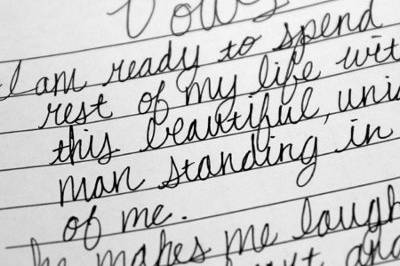 Vows
I am ready to spend
rest of my life wit
this beautiful, uni
man standing in
of me.
he makes me laugh